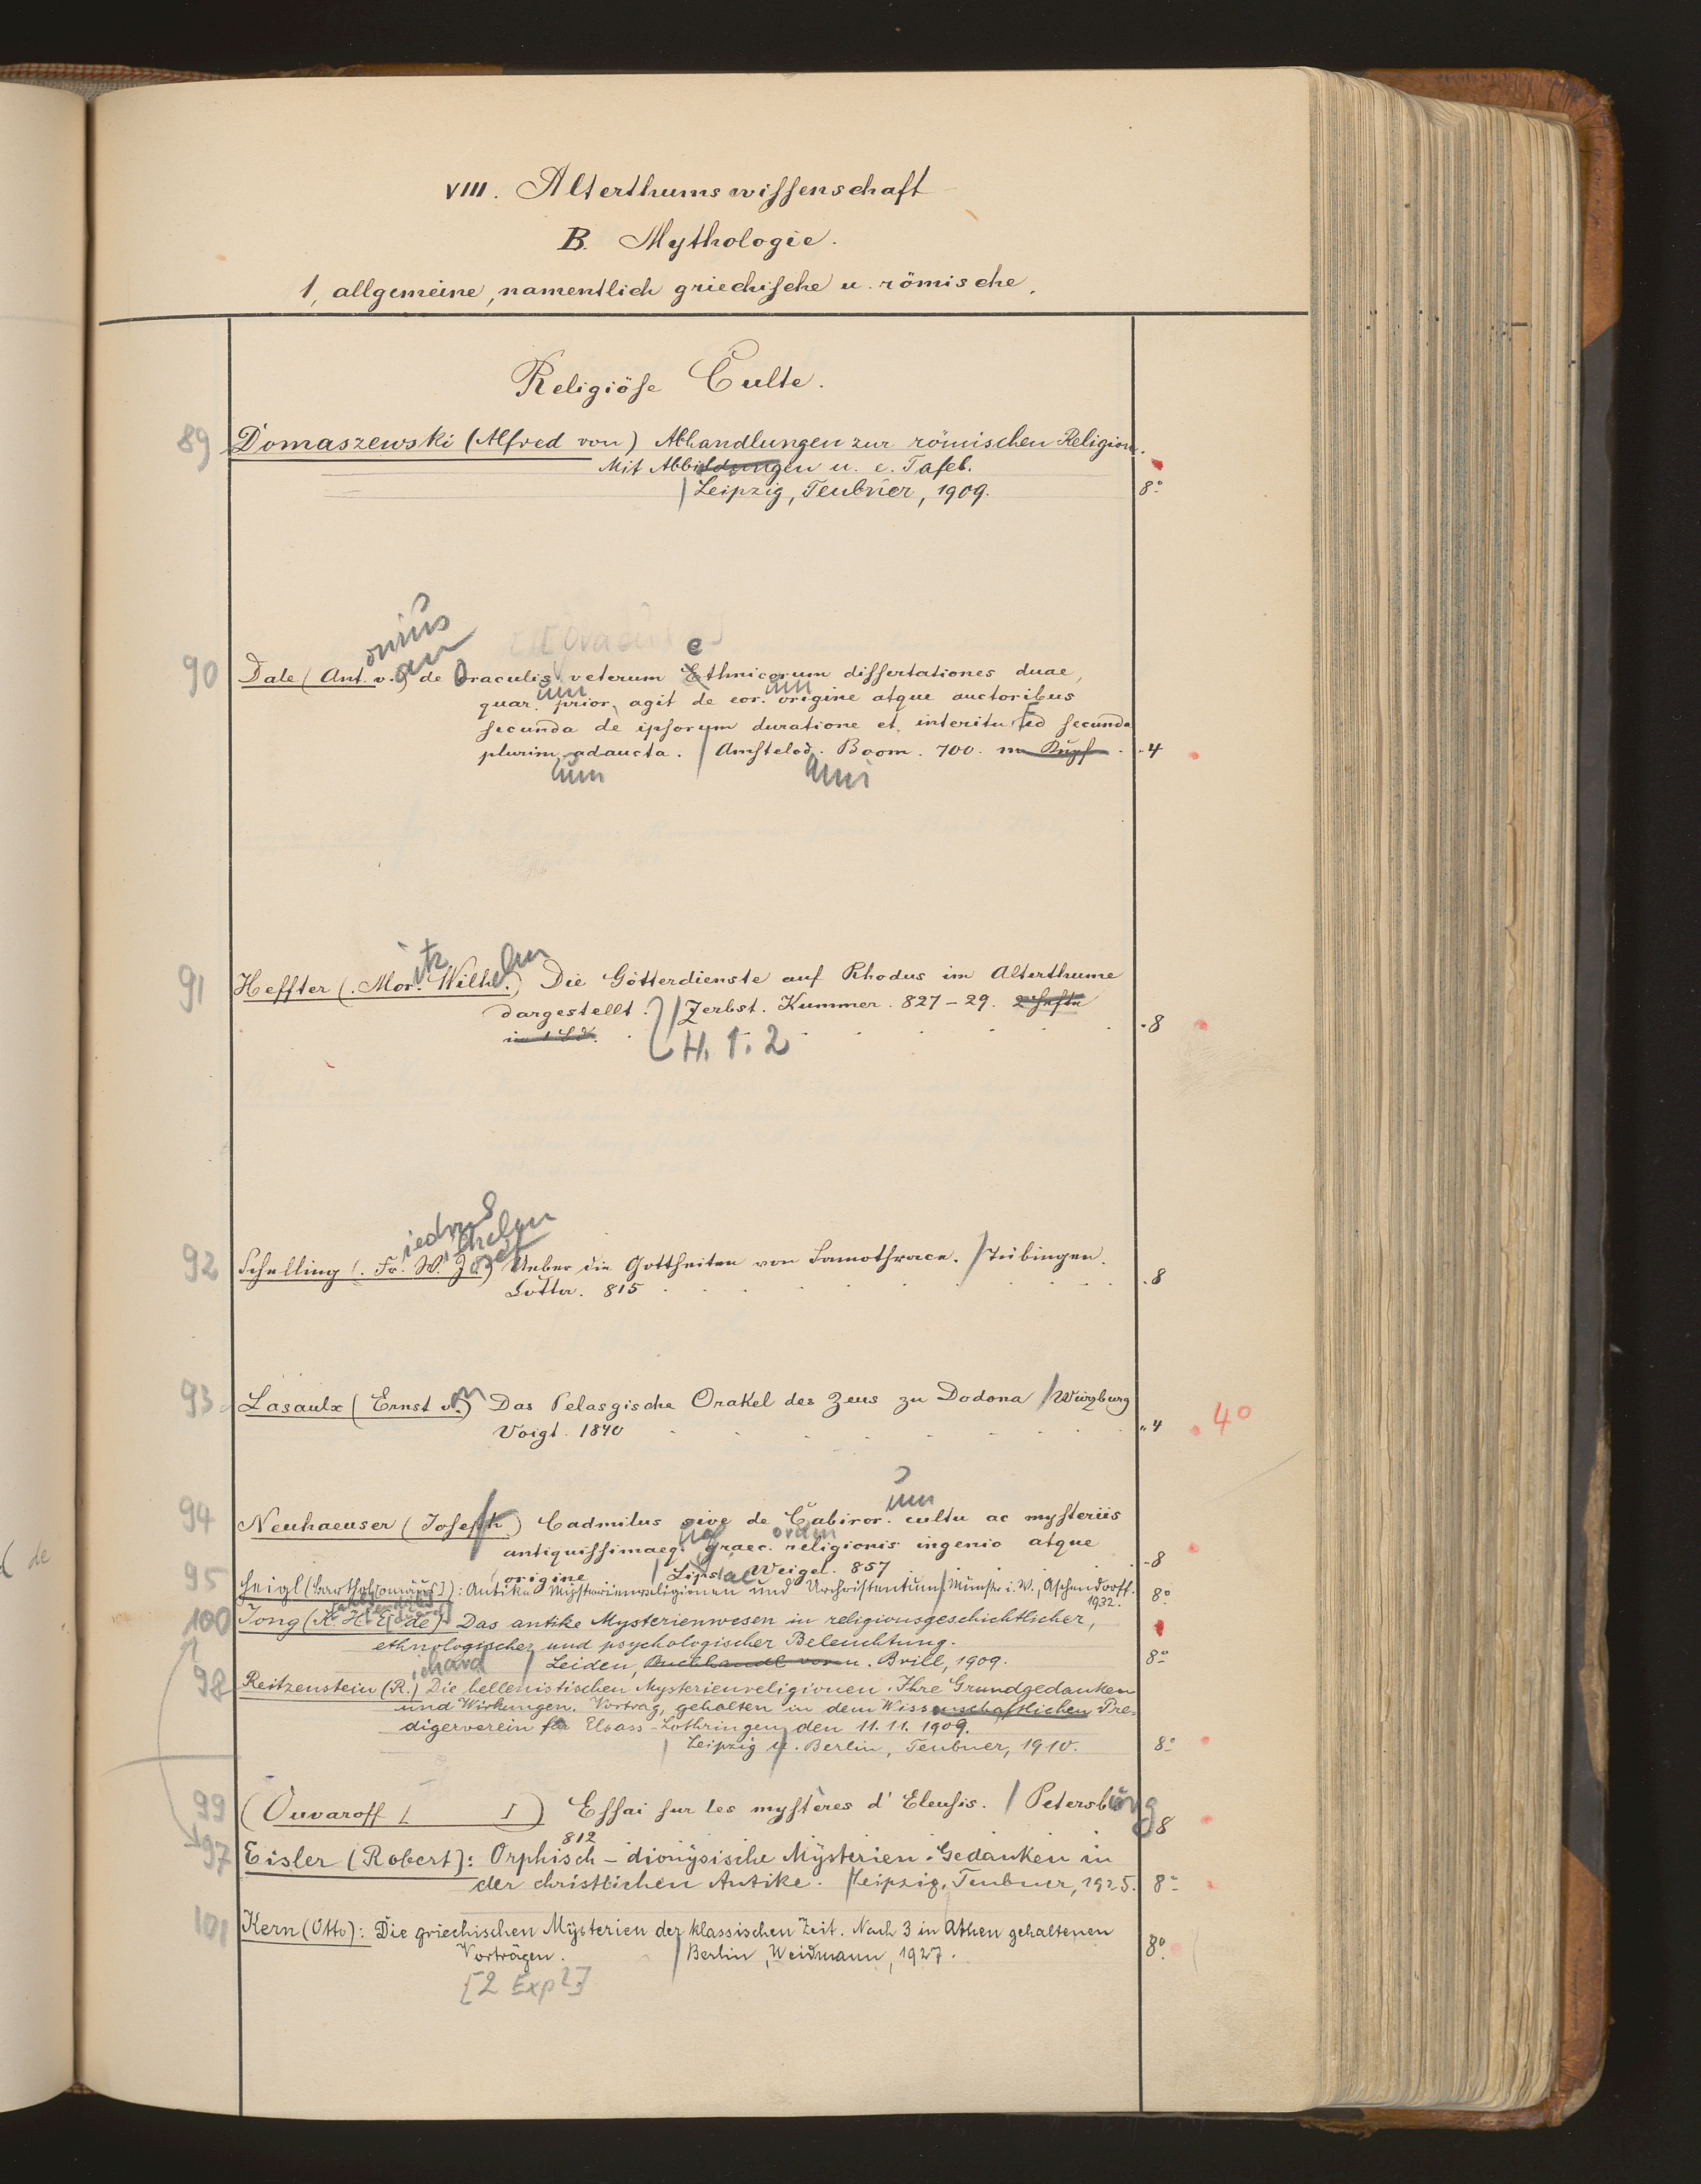 VIII. Alterthumswissenschaft
B. Mythologie.
1, allgemeine, namentlich griechische u. römische.
Religiöse Culte.
89 Domaszewski (Alfred von) Abhandlungen zur römischen Religion.
Mit Abbildungen u. e. Tafel.
/ Leipzig, Teubner, 1909. 8°
onius
an
e
90 Dale (Ant. v.) de Oraculis veterum Ethnicorum dissertationes duae,
um um
quar. prior. agit de eor. origine atque auctoribus
secunda de ipsorum duratione et interitu Ed secunda
plurim. adaucta. / Amstelod. Boom. 700. m Kupf. 4
um ami
itz elm
91 Heffter (Mor. Wilh.) Die Götterdienste auf Rhodus im Alterthume
dargestellt. / Zerbst. Kummer. 827-29. 2 Hefte
in 1 Bd. H. 1. 2 8
iedr
ilhelm
osef
92 Schelling (Fr. W. J.) Ueber die Gottheiten von Samothrace. / Tübingen.
Cotta. 815 8
93 Lasaulx (Ernst v.) Das Pelasgische Orakel des Zeus zu Dodona / Würzburg
Voigt. 1840 4 4°
um
94 Neuhaeuser (Joseph) Cadmilus sive de Cabiror. cultu ac mysteriis
antiquissimaeq. graec. religionis ingenio atque
origine / Lipsiae Weigel. 857 8
95 Heigl (Barthol[omäus]): Antike Mysterienreligionen und Urchristentum / Münster i. W., Aschendorff. 1932. 8°
100 Jong (K. H. E. de) Das antike Mysterienwesen in religionsgeschichtlicher,
ethnologischer und psychologischer Beleuchtung.
/ Leiden, Buchhandl. vorm. Brill, 1909. 8°
ichard
98 Reitzenstein (R.) Die hellenistischen Mysterienreligionen. Ihre Grundgedanken
und Wirkungen. Vortrag, gehalten in dem Wissenschaftlichen Pre-
digerverein für Elsass-Lothringen den 11. 11. 1909.
/ Leipzig u. Berlin, Teubner, 1910. 8°
99 (Ouvaroff [ ]) Essai sur les mystères d'Eleusis. / Petersburg 8
812
97 Eisler (Robert): Orphisch-dionysische Mysterien-Gedanken in
der christlichen Antike. / Leipzig, Teubner, 1925. 8°
101 Kern (Otto): Die griechischen Mysterien der klassischen Zeit. Nach 3 in Athen gehaltenen
Vorträgen. / Berlin, Weidmann, 1927. 8°
[2 Expl]
de